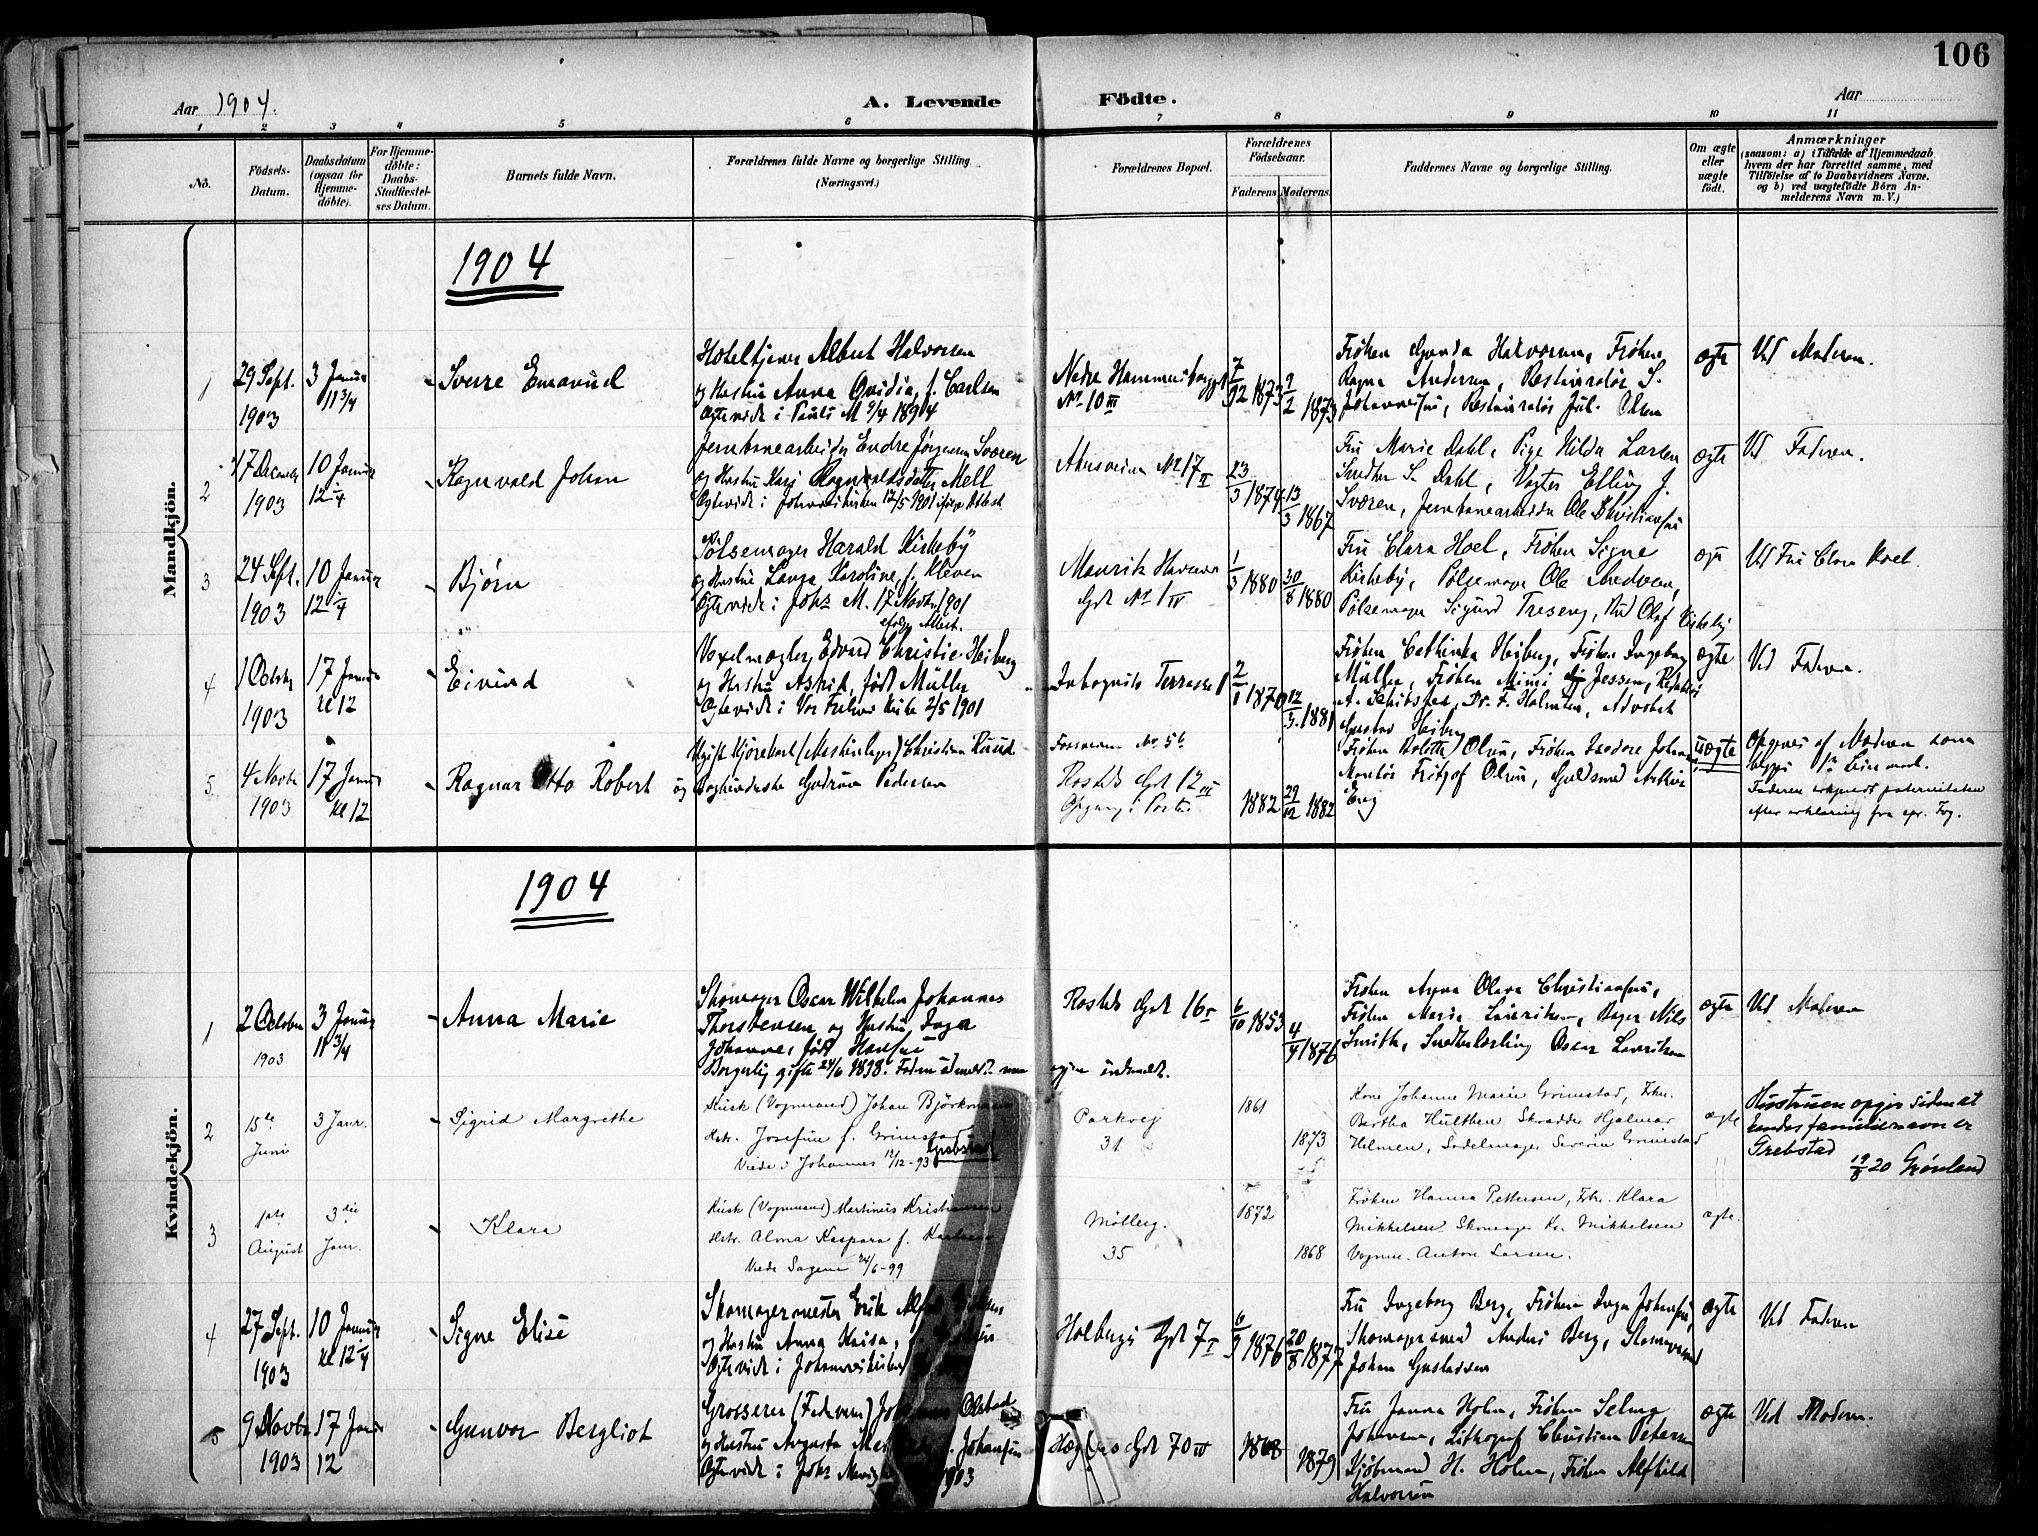 106
Aar 1904.
A. Levende Födte.
Aar
1 2 3 4 5 6 7 8 9 10 11
No.
Födsels-Datum.
Daabsdatum (ogsaa for Hjemme-döbte).
For Hjemme-döbte: Daabs-Stadfæstel-ses Datum.
Barnets fulde Navn.
Forældrenes fulde Navne og borgerlige Stilling. (Næringsvei.)
Forældrenes Bopæl.
Forældrenes Födselsaar.
Faderens. Moderens.
Faddernes Navne og borgerlige Stilling.
Om ægte eller uægte födt.
Anmærkninger
(saasom: a) i Tilfælde af Hjemmedaab,
hvem der har forrettet samme, med
Tilföielse af to Daabsvidners Navne,
og b) ved uægtefödte Börn An-
melderens Navn m. V.)
Mandkjön.
1904
1
29 Sept. 1903
3 Januar 11 3/4
Sverre Emanuel
Hoteltjener Albert Halvorsen
og Hustru Anna Ovidia, f. Carlsen
Ægteviede i Pauls M 2/4 1894
Nedre Hammersborggt No 10 III
7/12 1873
9/2 1873
Frøken Gunda Halvorsen, Frøken
Ragna Andersen, Restauratør S.
Johannessen, Restauratør Jul. Olsen
ægte
Ved Moderen.
2
17 Decembr 1903
10 Januar 12 1/4
Ragnvald Johan
Jernbanearbeider Endre Jørgensen Sværen
og Hustru Kari Ragnvaldsdatter Mell
Ægteviede i Johanneskirken 12/5 1901 ifølge Attest
Akersveien No 17 II
23/3 1874
13/3 1867
Fru Marie Dahl, Pige Hilda Larsen
Smed S. Dahl, Vogter Elling J.
Sværen, Jernbanearbeider Ole Christiansen
ægte
Ved Faderen.
3
24 Sept. 1903
10 Januar 12 1/4
Bjørn
Pølsemager Harald Kirkeby
og Hustru Laura Karoline, f. Kleven
Ægteviede i Johs M. 17 Novbr 1901
ifølge Attest.
Mauritz Hansens Gdt No 1 IV
1/3 1880
30/8 1880
Fru Clara Hoel, Frøken Signe
Kirkeby, Pølsemager Ole Andersen,
Pølsemager Sigurd Treseng, Olaf Kirkeby
ægte
Ved Fru Clara Hoel.
4
1 Octobr 1903
17 Januar kl 12
Eivind
Vexelmægler Edvard Christie Heiberg
og Hustru Astrid, født Müller
Ægteviede i Vor Frelsers Kirke 2/5 1901
Incognito Terrasse 1
2/1 1870
12/3 1881
Frøken Cathinka Heiberg, Frøken Ingeborg
Müller, Frøken Mimi Jessen, Redaktør
A. Schibsted, Dr. F. Holmsen, Advokat
Gustav Heiberg
ægte
Ved Faderen.
5
4 Novbr 1903
17 Januar kl 12
Ragnar Otto Robert
Ugift Kjørekarl Christian Ruud
og Boghinderske Gudrun Pedersen
Fossveien No. 5b
Rosteds Gdt 12 III
Opgang i Porten
1882
29/12 1882
Frøken Olsen, Frøken Isadore Johansen,
Montør Fritjof Olsen, Guldsmed Arthur
Eng
uægte
Opgives af Moderen som
begges 1ste Leiermaal.
Faderen erkjendt paterniteten
efter erklæring fra
Kvindekjön.
1904
1
2 October 1903
3 Januar 11 3/4
Anna Marie
Skomager Oscar Wilhelm Johannes
Thorstensen og Hustru Inga
Johanne, født Hansen
Borgerlig gifte 24/6 1898. Faderen udmeldt men igjen indmeldt.
Rosteds Gdt 16 I
6/10 1853
4/4 1876
Frøken Anna Olava Christiansen,
Frøken Marie Lauritsen, Bager Nils
Smith, Smedlærling Oscar Lauritsen
ægte
Ved Moderen
2
15de Juni
3 Janr.
Sigrid Margrethe
Kusk (Vognmand) Johan Björkmann
Hstr. Josefine f. Grimstad
Grebstad
Viede i Johannes 12/12-93
Parkvej 31
1861
1873
Kone Johanne Marie Grimstad, Frkn.
Bertha Hulthen Skrædder Hjalmar
Helmen, Sadelmager Severin Grimstad
ægte
Hustruen opgir siden at
hendes familienavn er
Grebstad
19/8 20 Grønland
3
1ste August
3die Janr.
Klara
Kusk (Vognmand) Martinus Kristiansen
Hstr. Alma Kaspara f. Karlsen
Viede Sagene 24/6-99
Mölleg. 35
1872
1868
Frøken Hanna Pettersen, Frk. Klara
Mikkelsen Skomager Kr. Mikkelsen
Vognm. Anton Larsen.
ægte.
4
27 Sept. 1903
10 Januar kl 12 1/4
Signe Elise
Skomagermester Erik Alfred
og Hustru Anna Kaisa,
Ægteviede i Johanneskirken
Holbergs Gdt 7 I
6/9 1876
20/8 1877
Fru Ingeborg Berg, Frøken Inga Johansen,
Skomagersvend Anders Berg, Skomagersvend
Johan Gustavsen
ægte
Ved Faderen
5
9 Novbr 1903
17 Januar 12
Gunvor Bergliot
Grosserer (Fedevarer) Olstad
og Hustru Augusta Johansen
Ægteviede i Johs 1903
Hægdehaugs Gdt 70 IV
1868
1879
Fru Janna Holm, Frøken Selma
Johansen, Lithograf Christian Petersen
Kjøbmand H. Holm, Frøken Alfhild
Halvorsen
ægte
Ved Moderen.